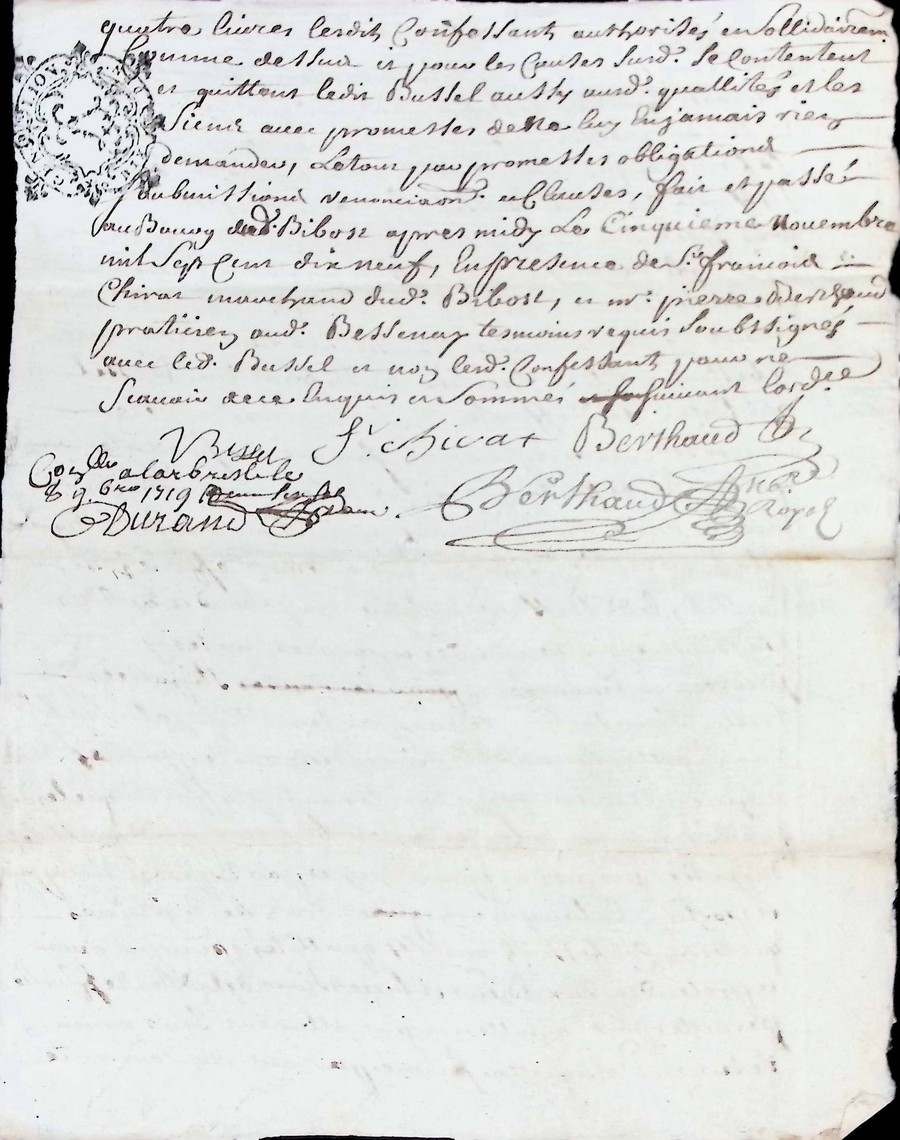 quatre livres lesdit Confessant authorisés en sollidairem.
Comme dessus et pour les Causes susd. Se Contentent
et quittent ledit Bussel aussy ausd. quallités et les
Siens avec promesses de ne luy En jamais rien
demander, Letout par promesses obligations
Soubmissions renonciaon. et Clauses, fait et passé
au Bourg dud. Bibost apres midy Le Cinquieme Novembre
mil Sept Cent dix neuf, En presence de Sr. francois
Chirat marchand dud. Bibost, et mr. pierre Berthaud
praticien aud. Bessenay tesmoins requis Soubssignés
avec led. Bussel et non lesd. Confessant pour ne
Scavoir de ce Enquis et Sommés suivant lordce
Bussel f. Chirat Berthaud
Con. lle a larbresle le
8 9.bre 1719
Durand
Berthaud
not. Royal